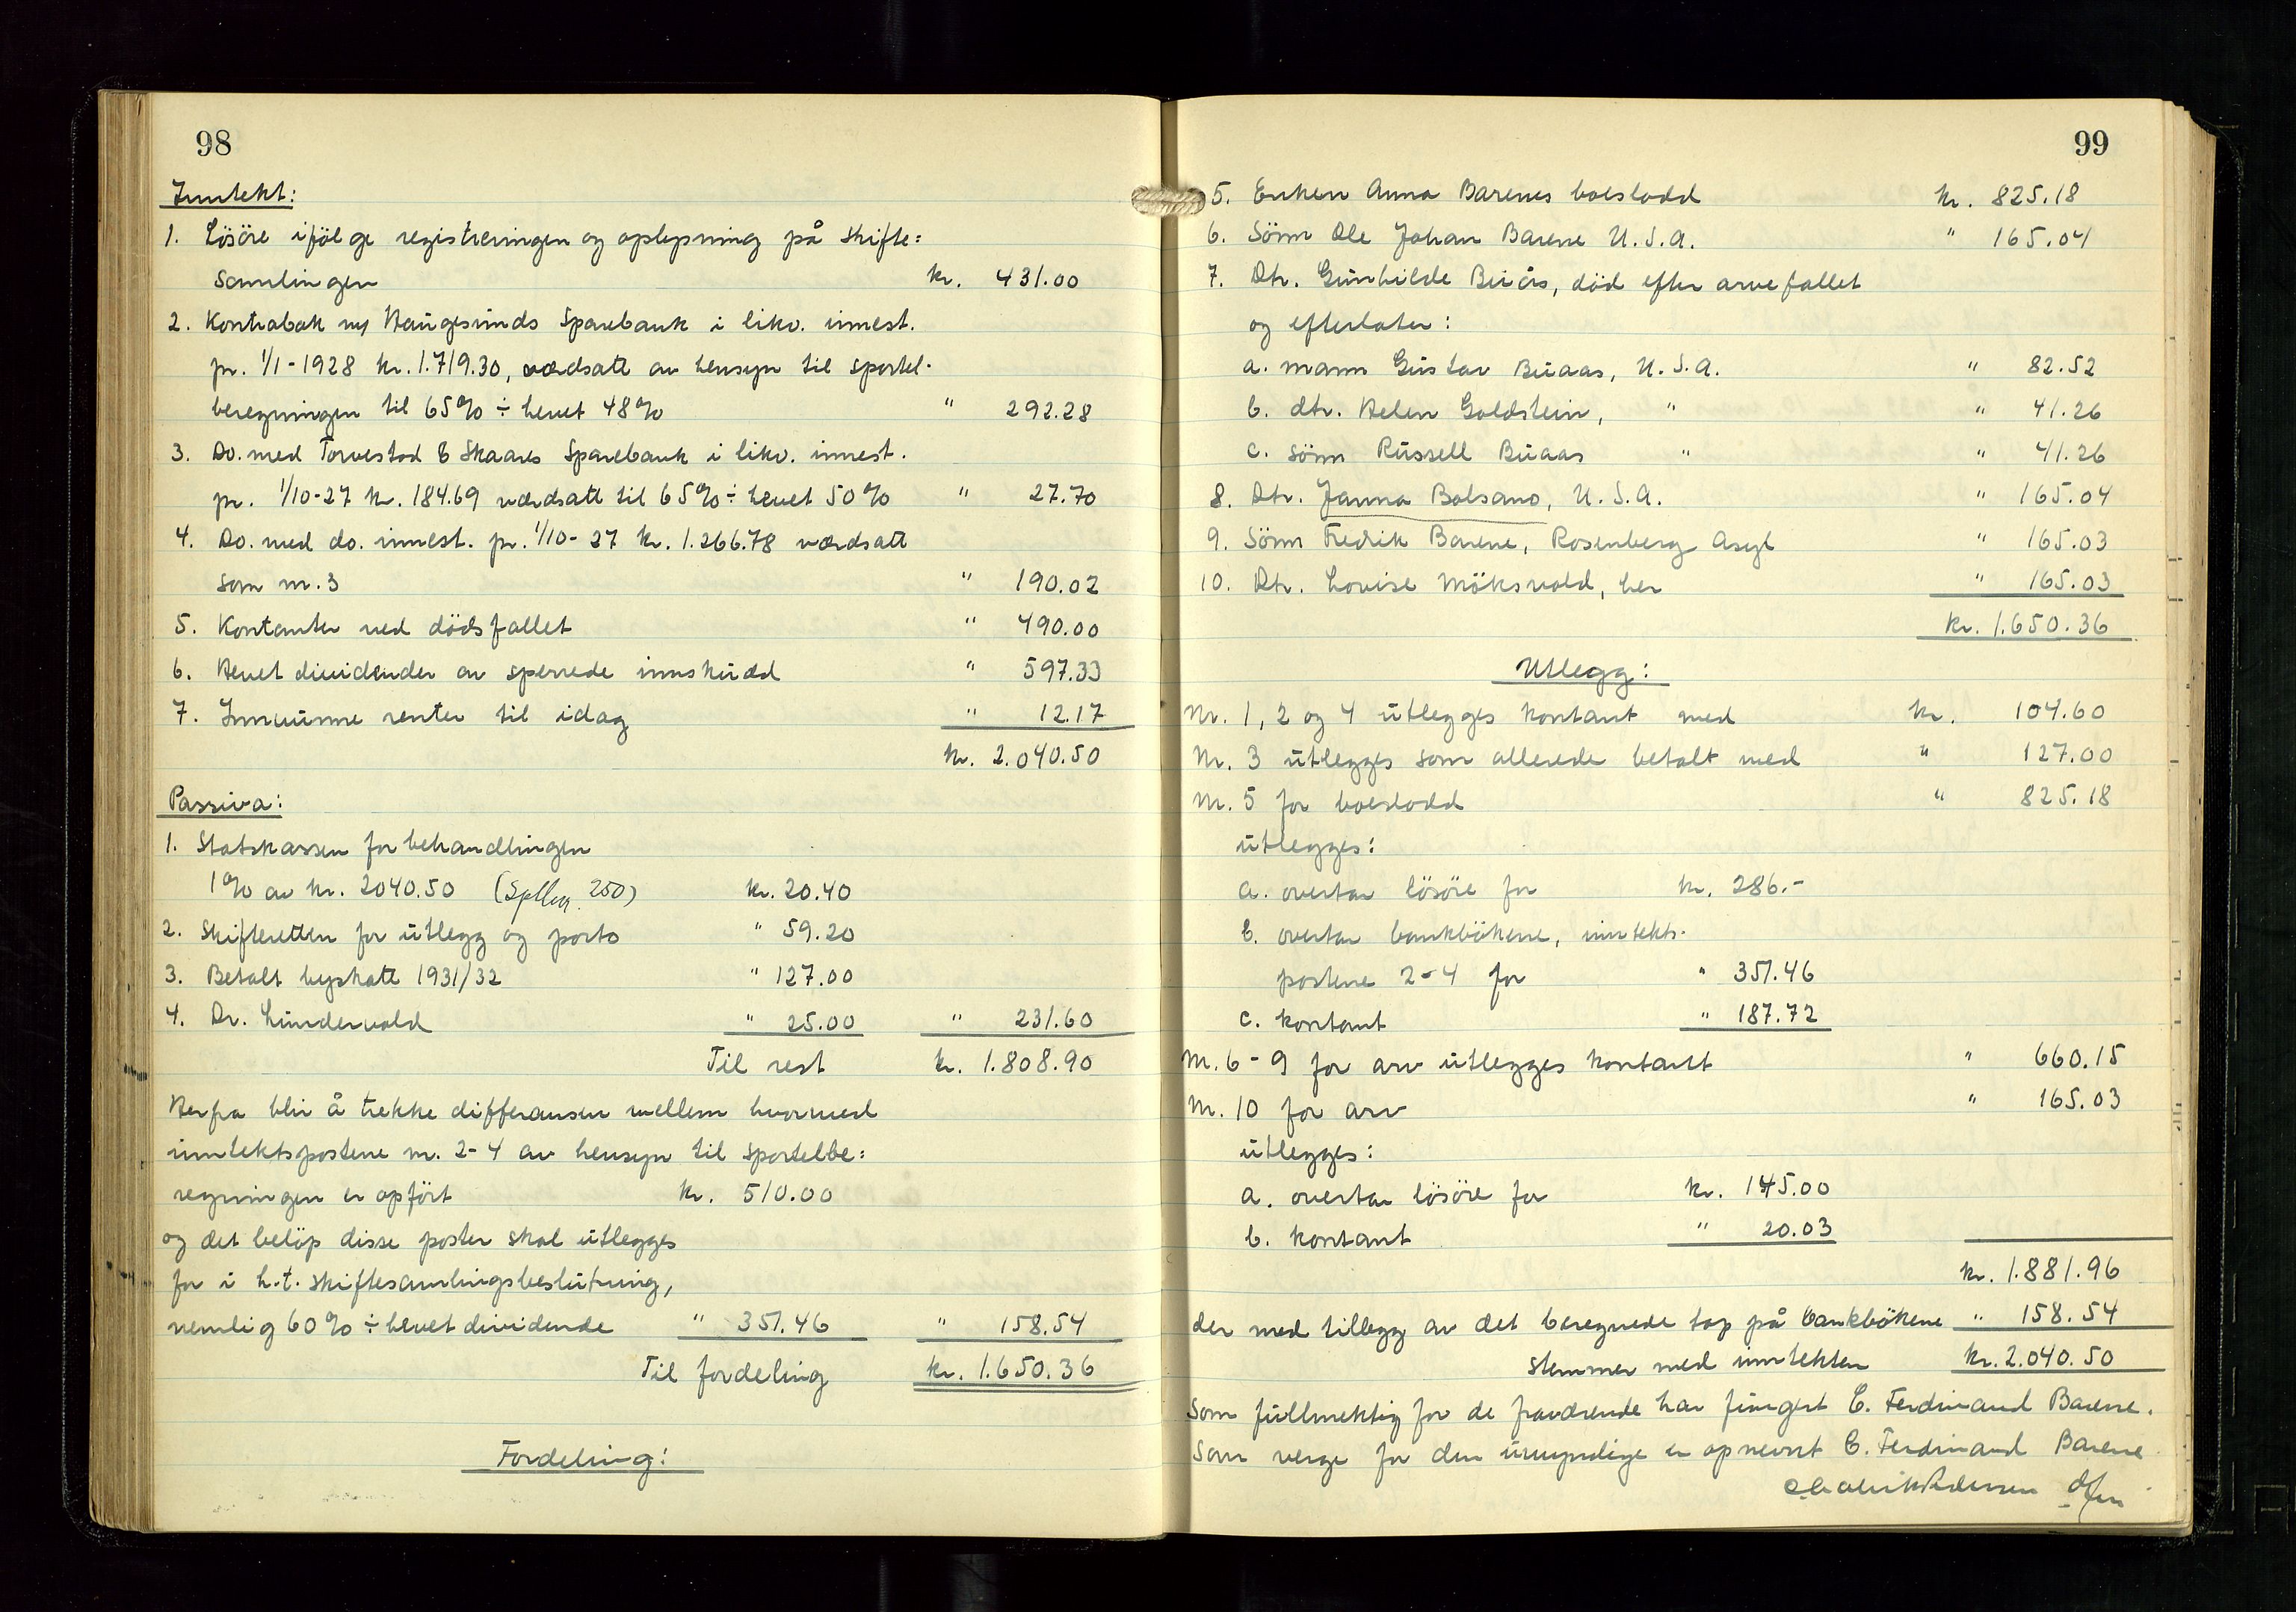 98
Inntekt:
1. Lösöre ifölge registreringen og oplysning på skifte=
samlingen kr. 431.00
2. Kontrabok m/ Haugesunds Sparebank i likv. innest.
pr. 1/1-1928 kr. 1.719.30, værdsatt av hensyn til sportel-
beregningen til 65% ÷ hevet 48% " 292.28
3. Do. med Torvestad & Skaares Sparebank i likv. innest.
pr. 1/10-27 kr. 184.69 værdsatt til 65% ÷ hevet 50% " 27.70
4. Do. med do. innest. pr. 1/10-27 kr. 1.266.78 værdsatt
som nr. 3 " 190.02
5. Kontanter ved dödsfallet " 490.00
6. Hevet dividender av sperrede innskudd " 597.33
7. Innvunne renter til idag " 12.17
kr. 2.040.50
Passiva:
1. Statskassen for behandlingen
1% av kr. 2040.50 (Sp 250) kr. 20.40
2. Skifteretten for utlegg og porto " 59.20
3. Betalt byskatt 1931/32 " 127.00
4. Dr. Lundervold " 25.00 " 231.60
Til rest kr. 1.808.90
Herfra blir å trekke differansen mellem hvormed
inntektspostene nr. 2-4 av hensyn til sportelbe=
regningen er opfört kr. 510.00
og det belöp disse poster skal utlegges
for i h.t. skiftesamlingsbeslutning,
nemlig 60% ÷ hevet dividende " 351.46 " 158.54
Til fordeling kr. 1.650.36
Fordeling:
99
5. Enken Anna Barenes boeslodd kr. 825.18
6. Sönn Ole Johan Barene U.S.A. " 165.04
7. Dtr. Gunhilde Buås, död efter arvefallet
og efterlater:
a. mann Gustav Buaas, U.S.A. " 82.52
b. dtr. Helen Goldstein, " " 41.26
c. sönn Russell Buaas " " 41.26
8. Dtr. Janna Bolsano, U.S.A. " 165.04
9. Sönn Fredrik Barene, Rosenberg Asyl " 165.03
10. Dtr. Lovise Möksvold, her " 165.03
kr. 1.650.36
Utlegg:
Nr. 1, 2 og 4 utlegges kontant med kr. 104.60
Nr. 3 utlegges som allerede betalt med " 127.00
Nr. 5 for boeslodd " 825.18
utlegges:
a. overtar lösöre for kr. 286.-
b. overtar bankbökene, inntekts-
postene 2-4 for " 351.46
c. kontant " 187.72
Nr. 6-9 for arv utlegges kontant " 660.15
Nr. 10 for arv " 165.03
utlegges:
a. overtar lösöre for kr. 145.00
b. kontant " 20.03
kr. 1.881.96
der med tillegg av det beregnede tap på bankbökene " 158.54
stemmer med inntekten kr. 2.040.50
Som fullmektig for de fraværende har fungert C. Ferdinand Barene.
Som verge for den umyndige er opnevnt C. Ferdinand Barene